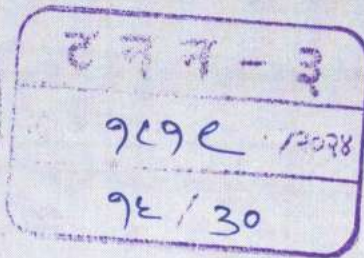 ट न न - ३
१८१९ /२०२४
१६ / ३०